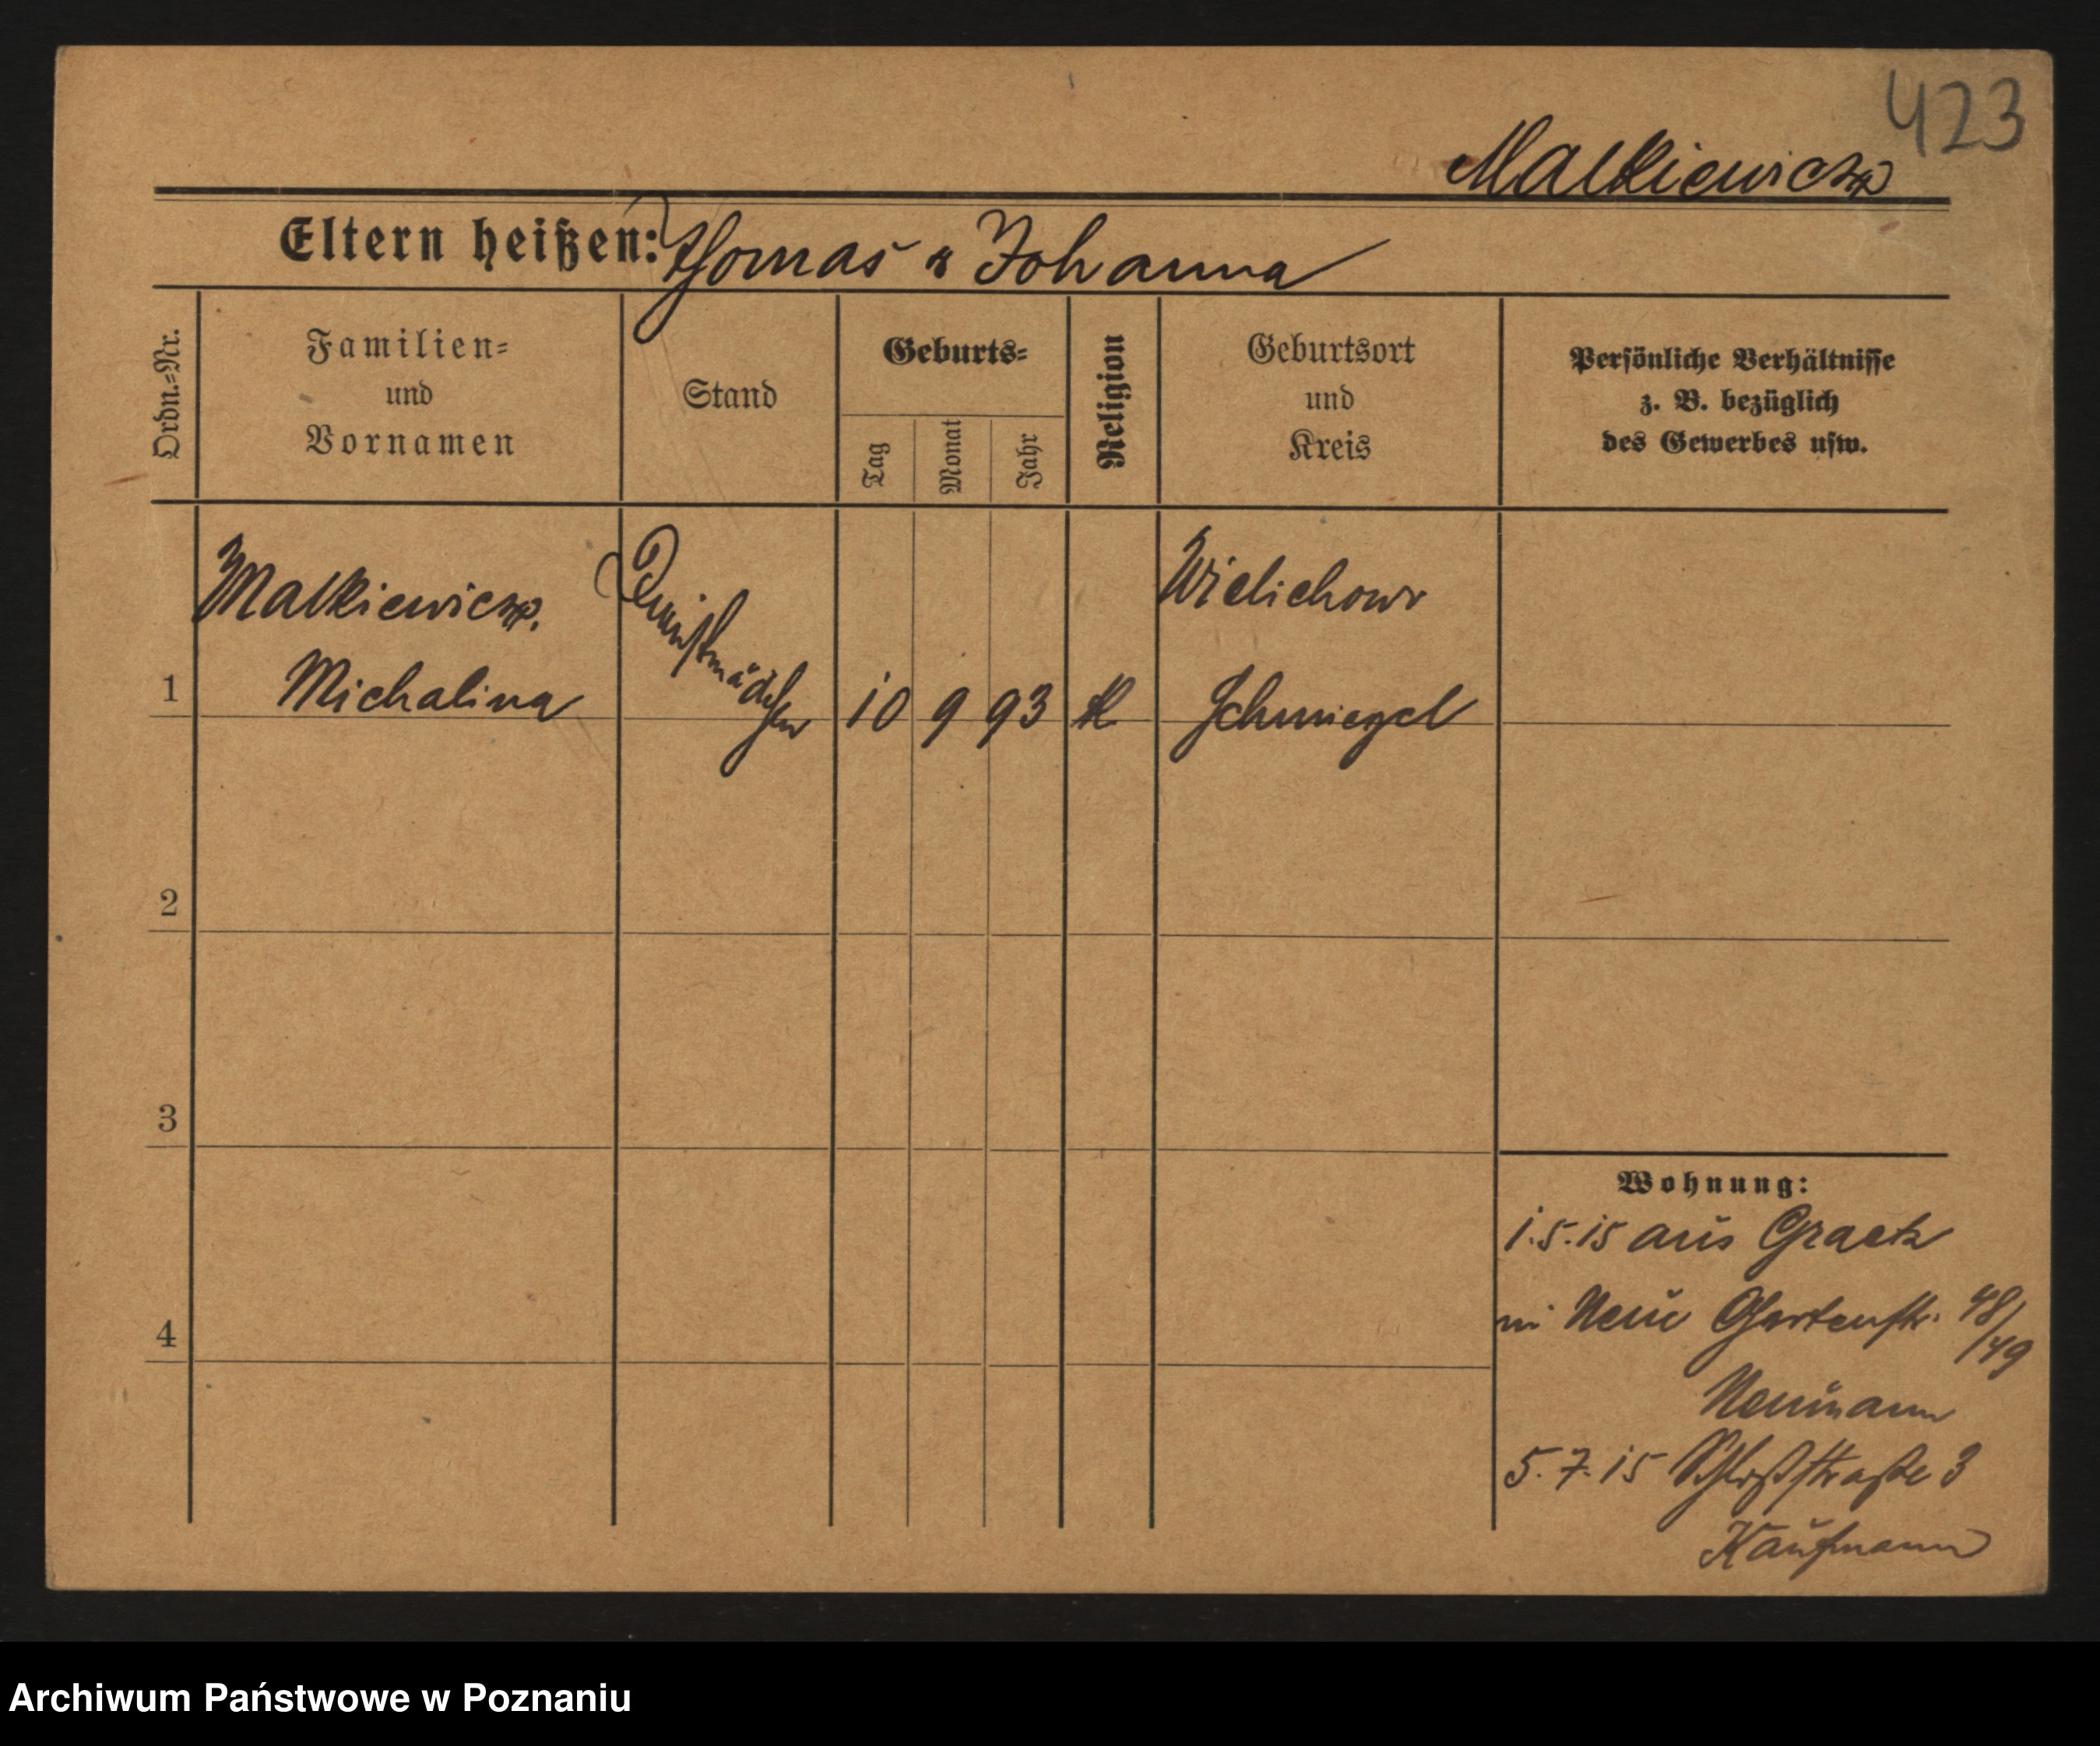 423
Malkiewicz
Eltern heißen: Thomas u Johanna
Ordn.=Nr.
Familien=
und
Vornamen
Stand
Geburts=
Tag
Monat
Jahr
Religion
Geburtsort
und
Kreis
Persönliche Verhältnisse
z. B. bezüglich
des Gewerbes usw.
Malkiewicz.
Michalina
Dienstmädchen
1
10 9 93 K
Wielichowo
Schmiegel
2
3
4
Wohnung:
1.5.15 aus Graetz
in Neue Gartenstr. 48/
/49
Neumann
5.7.15 Schloßstraße 3
Kaufmann
Archiwum Państwowe w Poznaniu